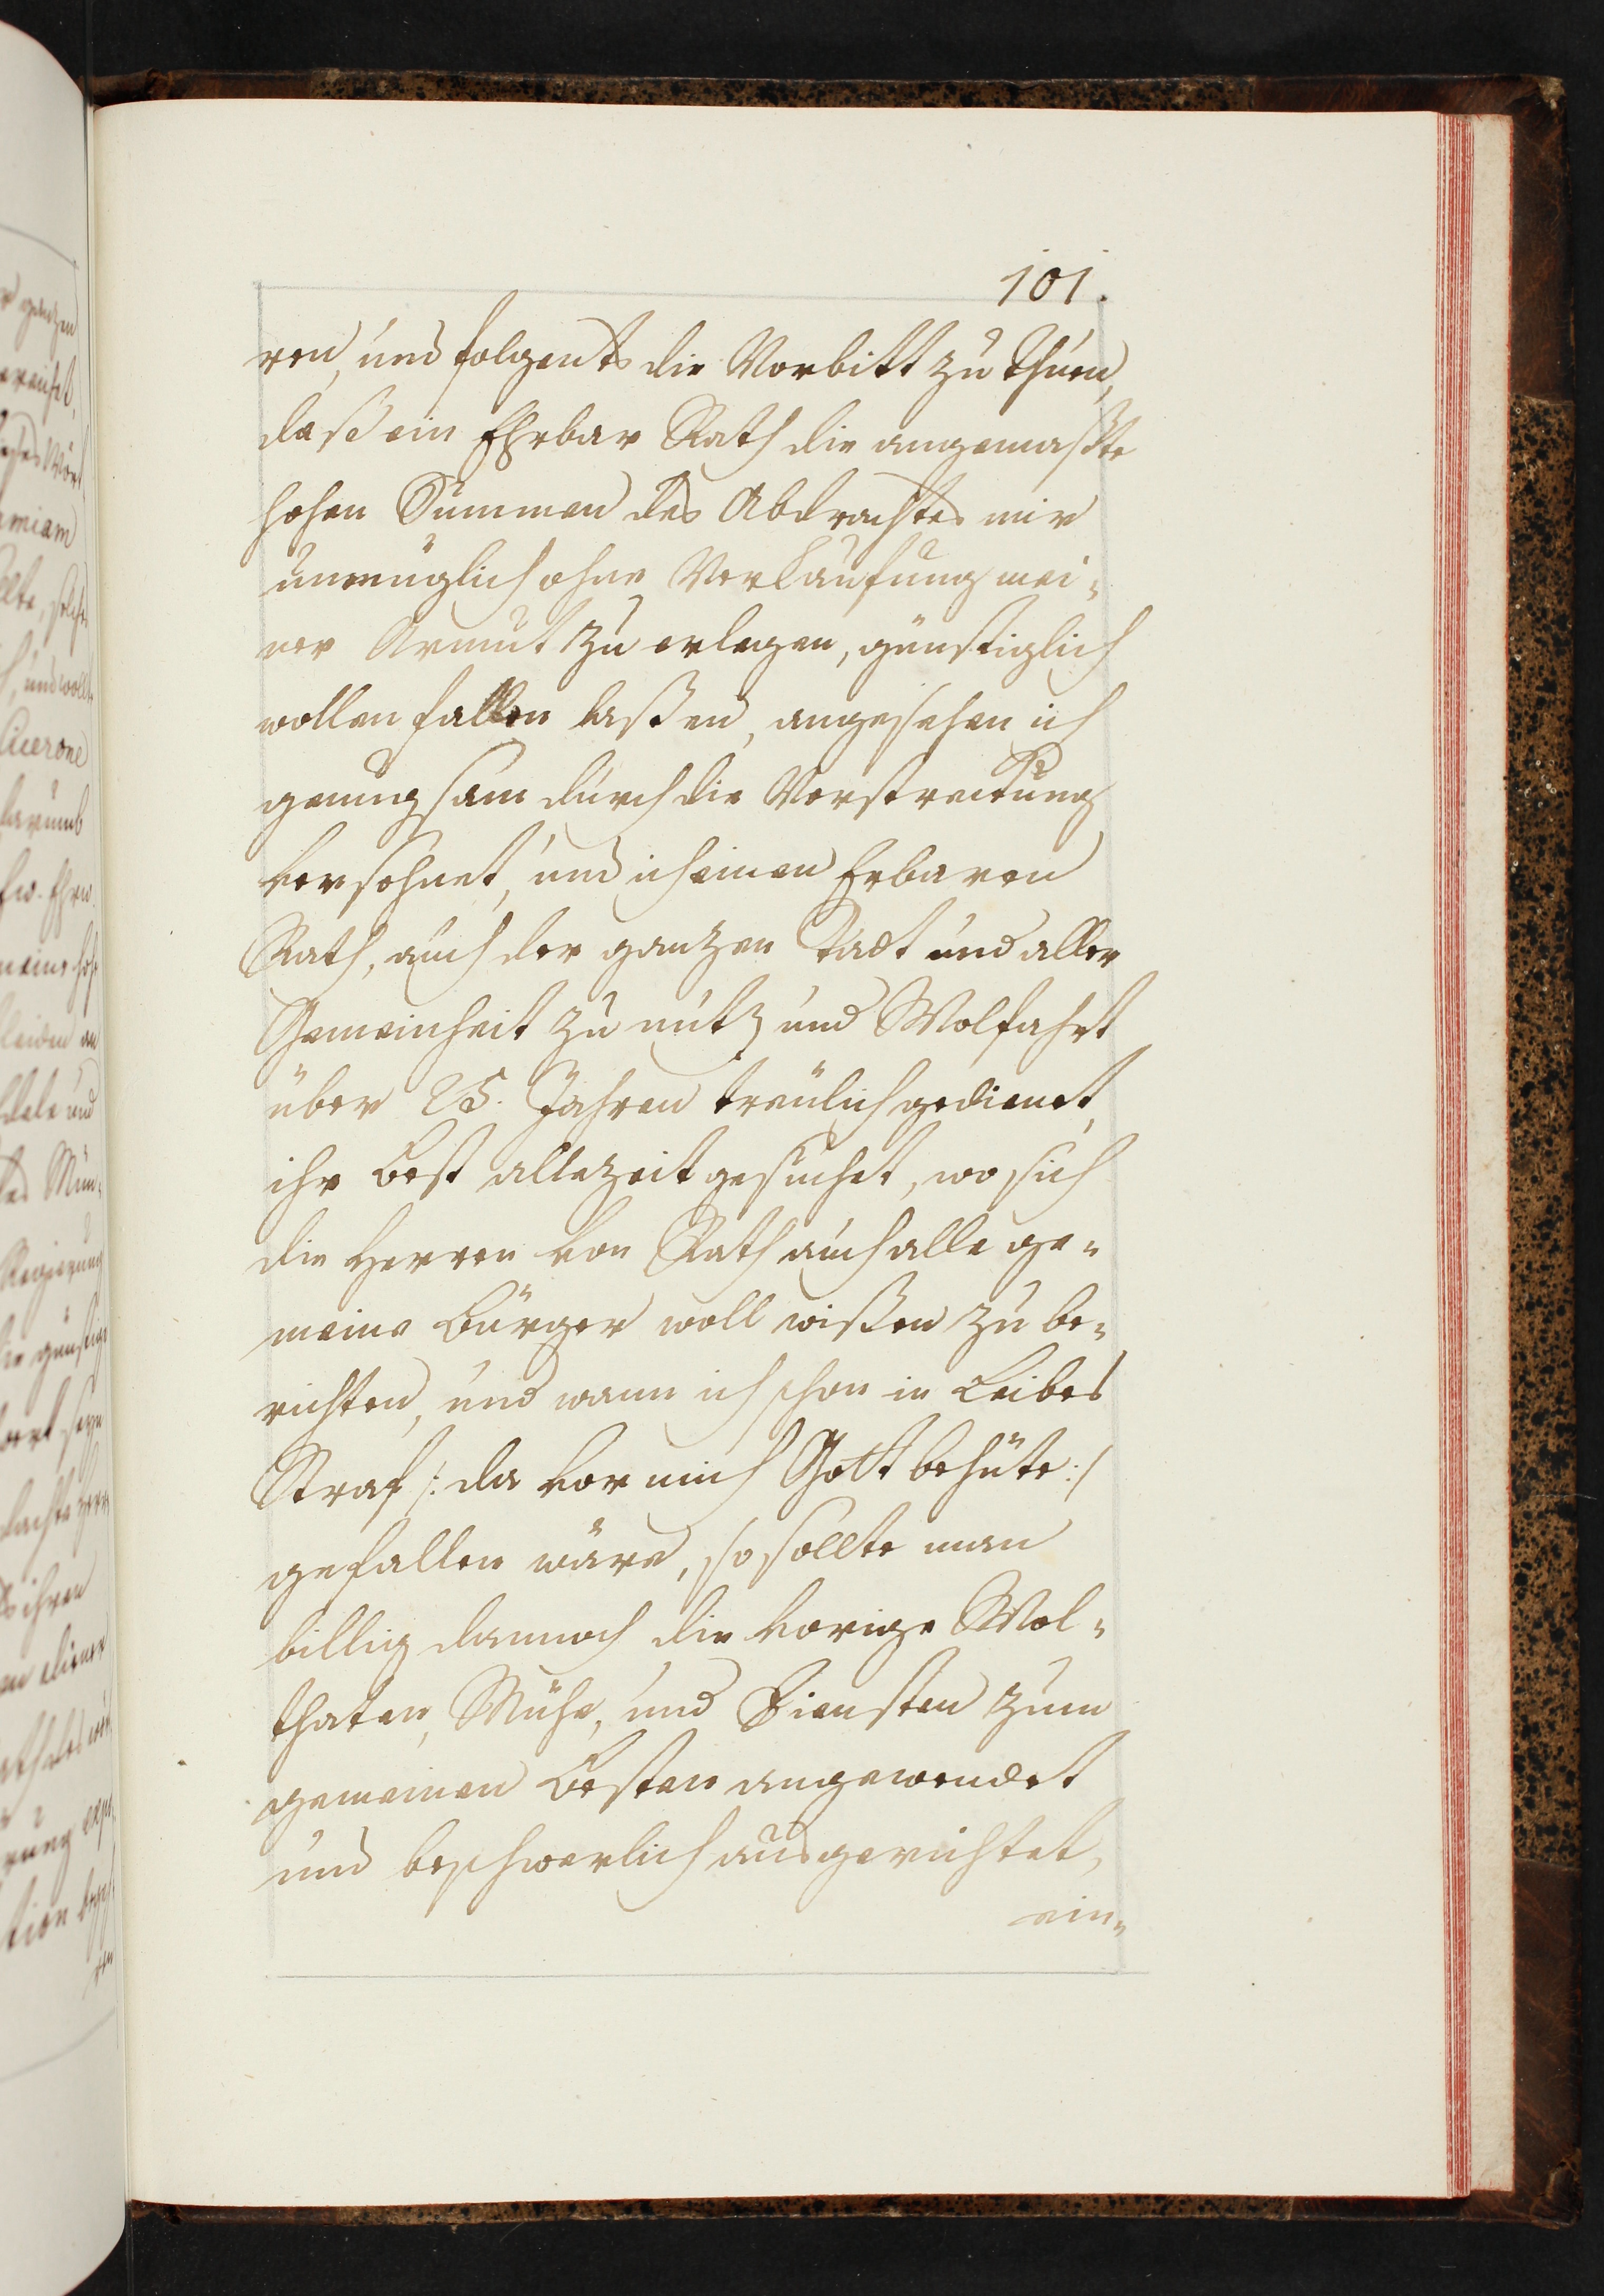 101.
ren, und folgents die Vorbitt zu thuen,
daß ein Ehrbar Rath die angemaßte
hohen Summen des Abdrachtes mir
unmüglich ohne Verkaufung mei-
ner Armut zu erlegen, günstiglich
wollen fallen laßen, angesehen ich
genungsam durch die Verstreckung
versohnet, und ich einen Erbaren
Rath, auch der ganzen Stadt und aller
Gemeinheit zu nutz und Wolfahrt
über 25. Jahren treülich gedienet,
ihr Best allezeit gesuchet, wo sich
die Herren von Rath auch alle ge-
meine Bürger woll wißen zu be-
richten, und wann ich schon in Leibes
Straf /: da vor mich Gott behüte :/
gefallen wäre, so sollte man
billig dannoch die vorige Wol-
thaten, Mühe, und Diensten zum
gemeinen Besten angewendet
und beschwerlich ausgerichtet,
ein-